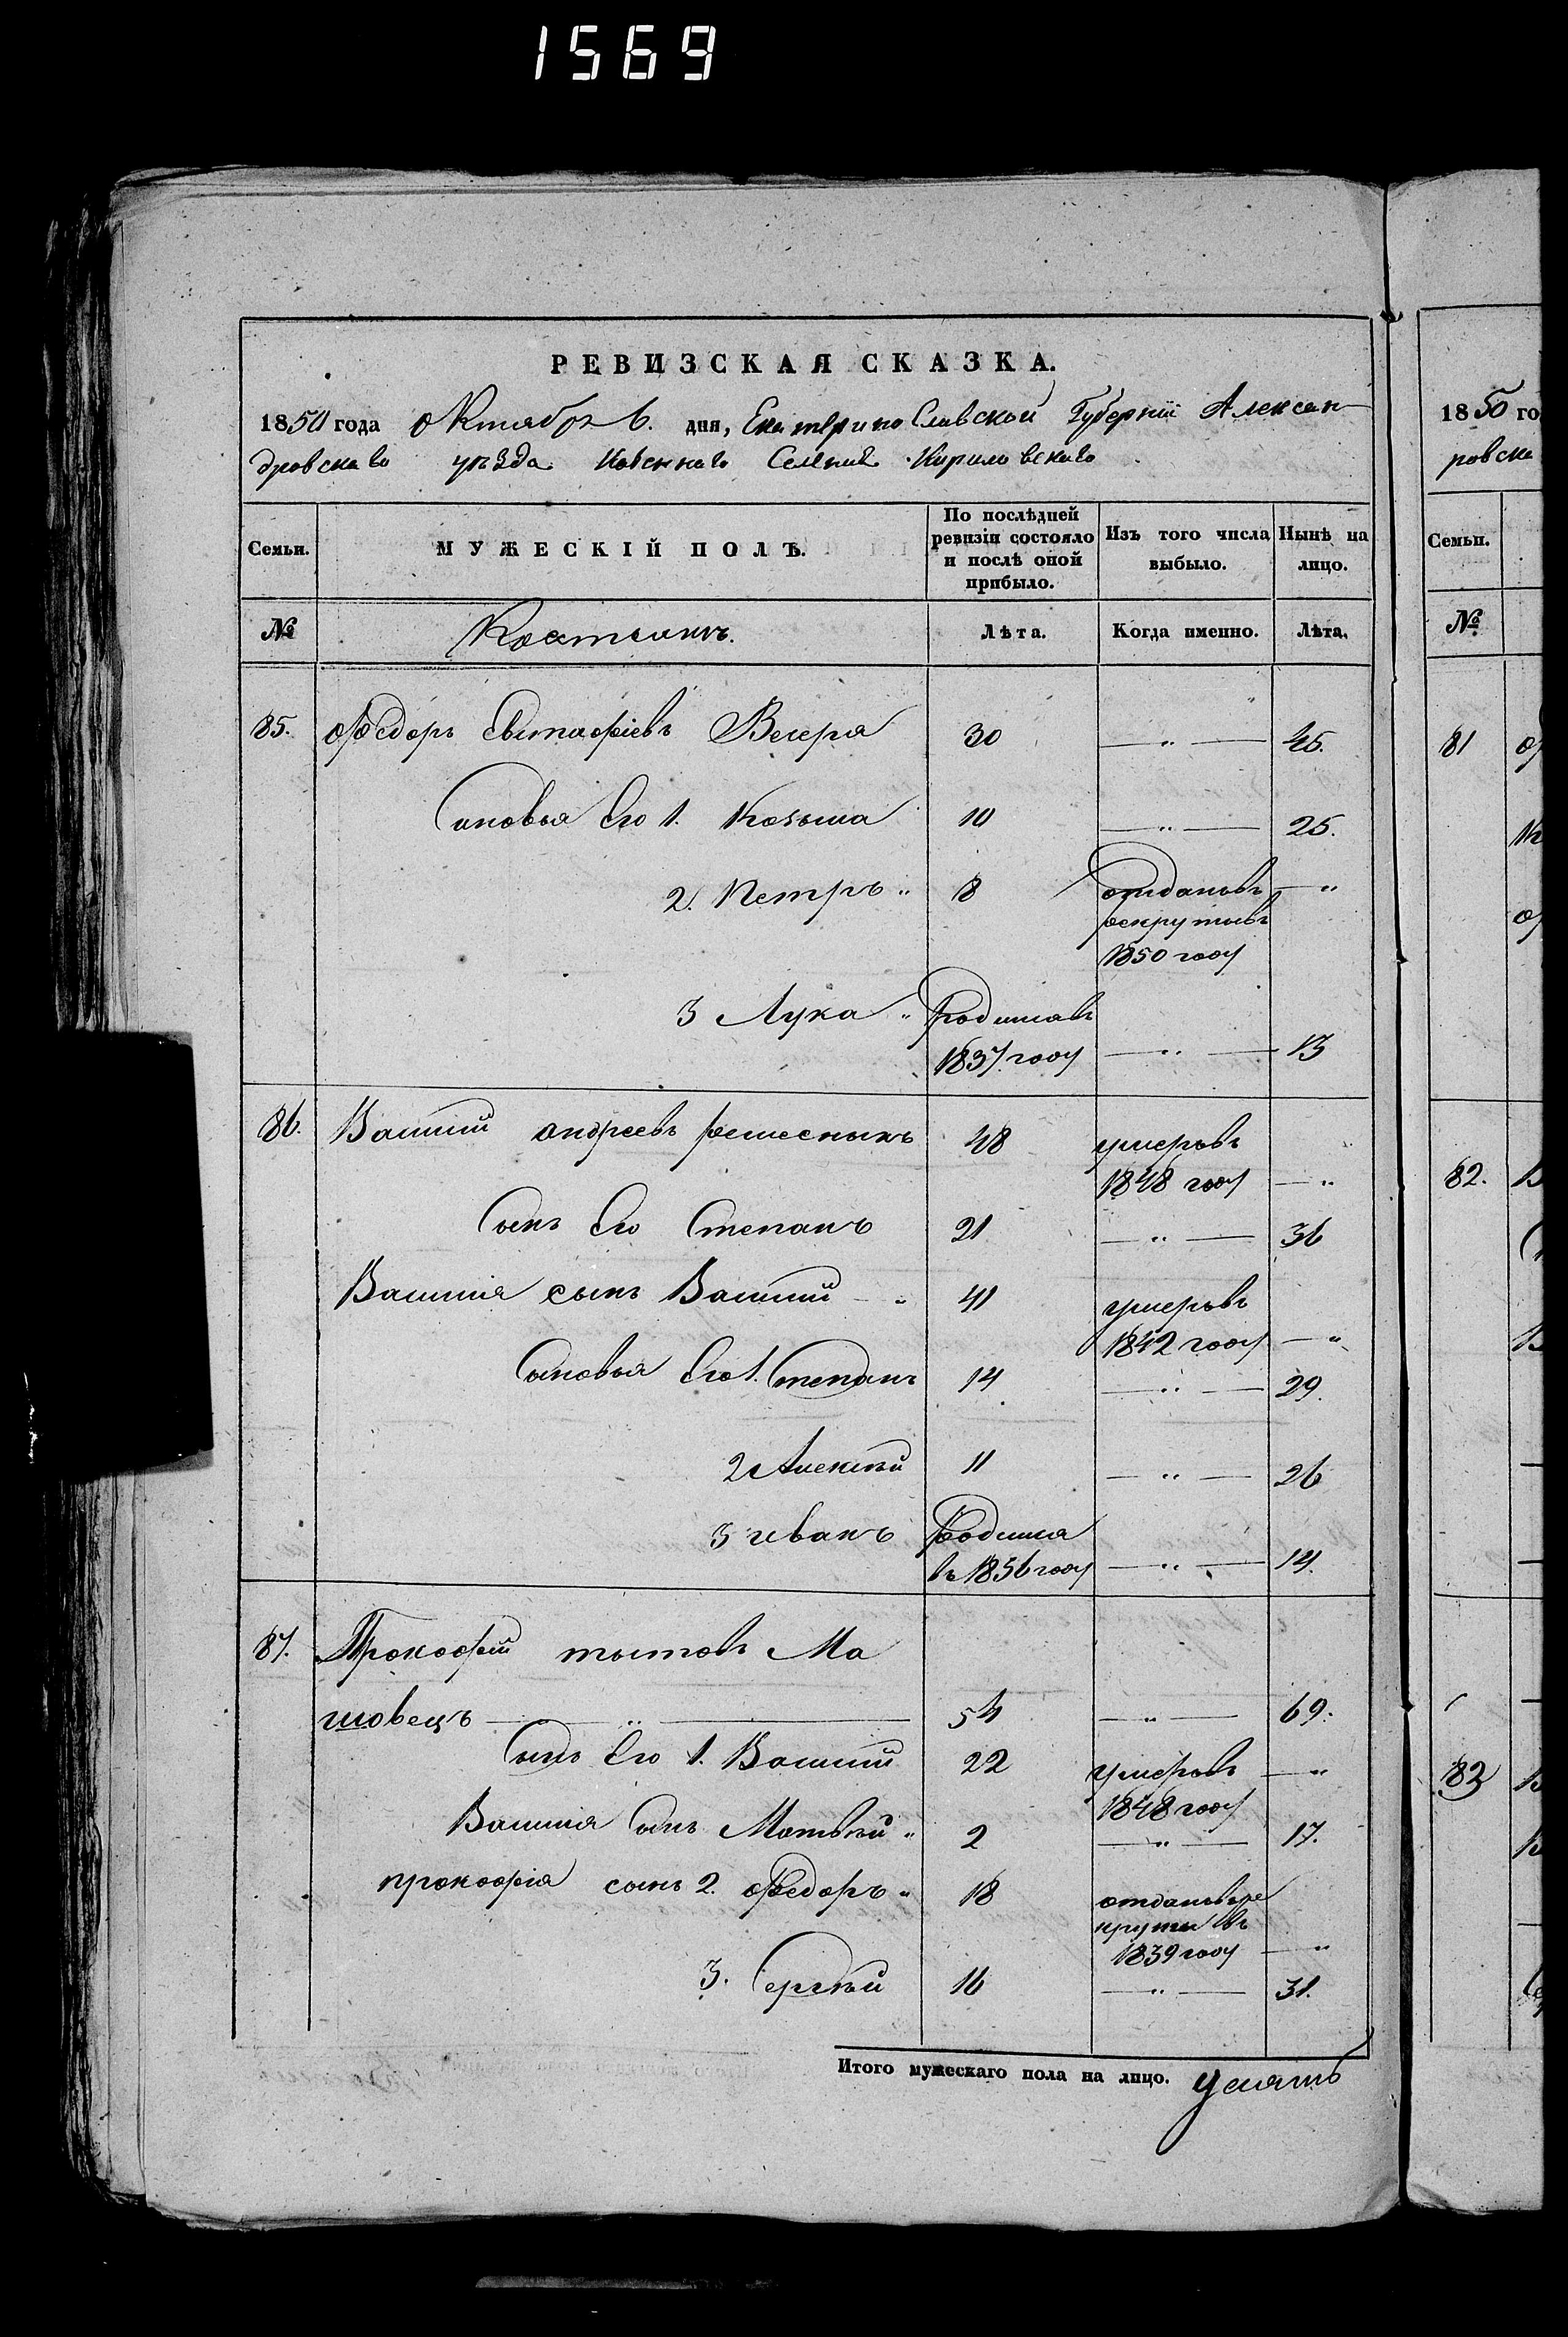 1569
РЕВИЗСКАЯ СКАЗКА.
1850 года октября 6. дня, Екатеринославской Губернии Алексан
дровскаго уѣзда Казеннаго Селенія Кириловскаго
Семьи.
МУЖЕСКІЙ ПОЛЪ.
По послѣдней ревизіи состояло и послѣ оной прибыло.
Изъ того числа выбыло.
Нынѣ на лицо.
№
Лѣта.
Когда именно.
Лѣта.
85. Федоръ Евстафіевъ Вечеря 30 — „ — 45.
Сыновья Его 1. Козьма 10 — „ — 25.
2. Петръ „ 8 отданъ въ — „
рекруты въ
1850 году
3 Лука „ Родился въ
1837 году — „ — 13
86. Василий андреевъ решетникъ 48 умеръ въ
1848 году — „
Сынъ Его Степанъ 21 — „ — 36
Василия сынъ Василий — „ 41 умеръ въ
1842 году — „
Сыновья Его 1. Степанъ 14 — „ — 29.
2 Алексѣй 11 — „ — 26
3 иванъ Родился
въ 1836 году — „ — 14.
87. Прокофий титовъ Ма
шовецъ — „ — 54 — „ — 69.
Сынъ Его 1. Василий 22 умеръ въ — „
1848 году
Василия Сынъ Матвѣй „ 2 — „ — 17.
прокофія сынъ 2. Федоръ „ 18 отданъ въ ре
круты въ
1839 году — „
3. Сергѣй 16 — „ — 31.
Итого мужескаго пола на лицо.
1850 го
ровска
Семьи.
№
81
82.
83